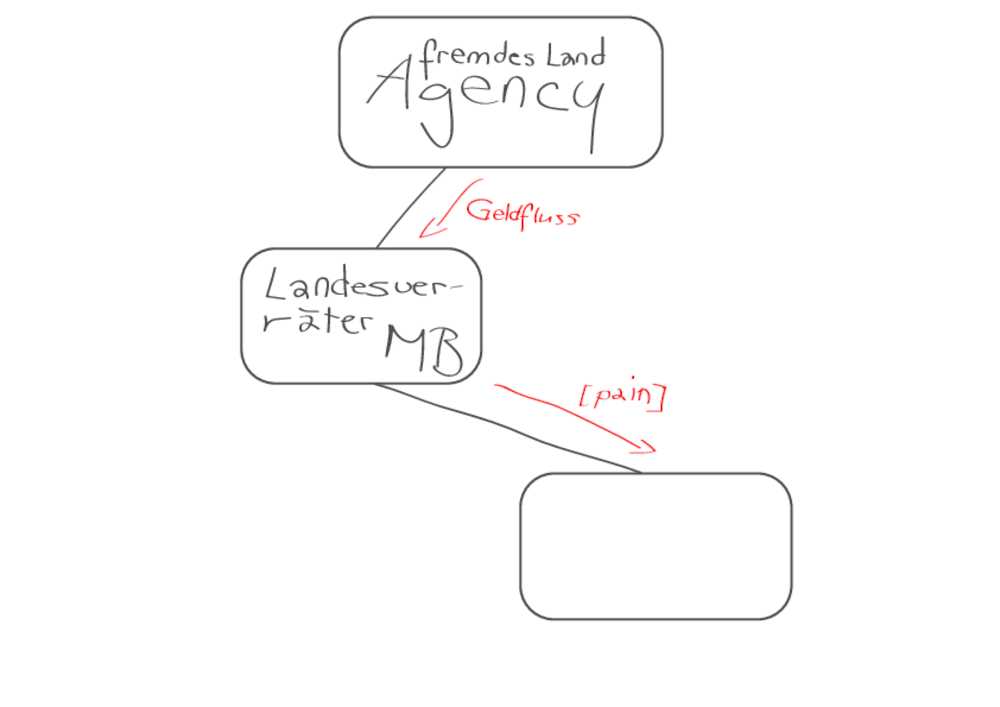 fremdes Land
Agency
Geldfluss
Landesver-
räter MB
[pain]